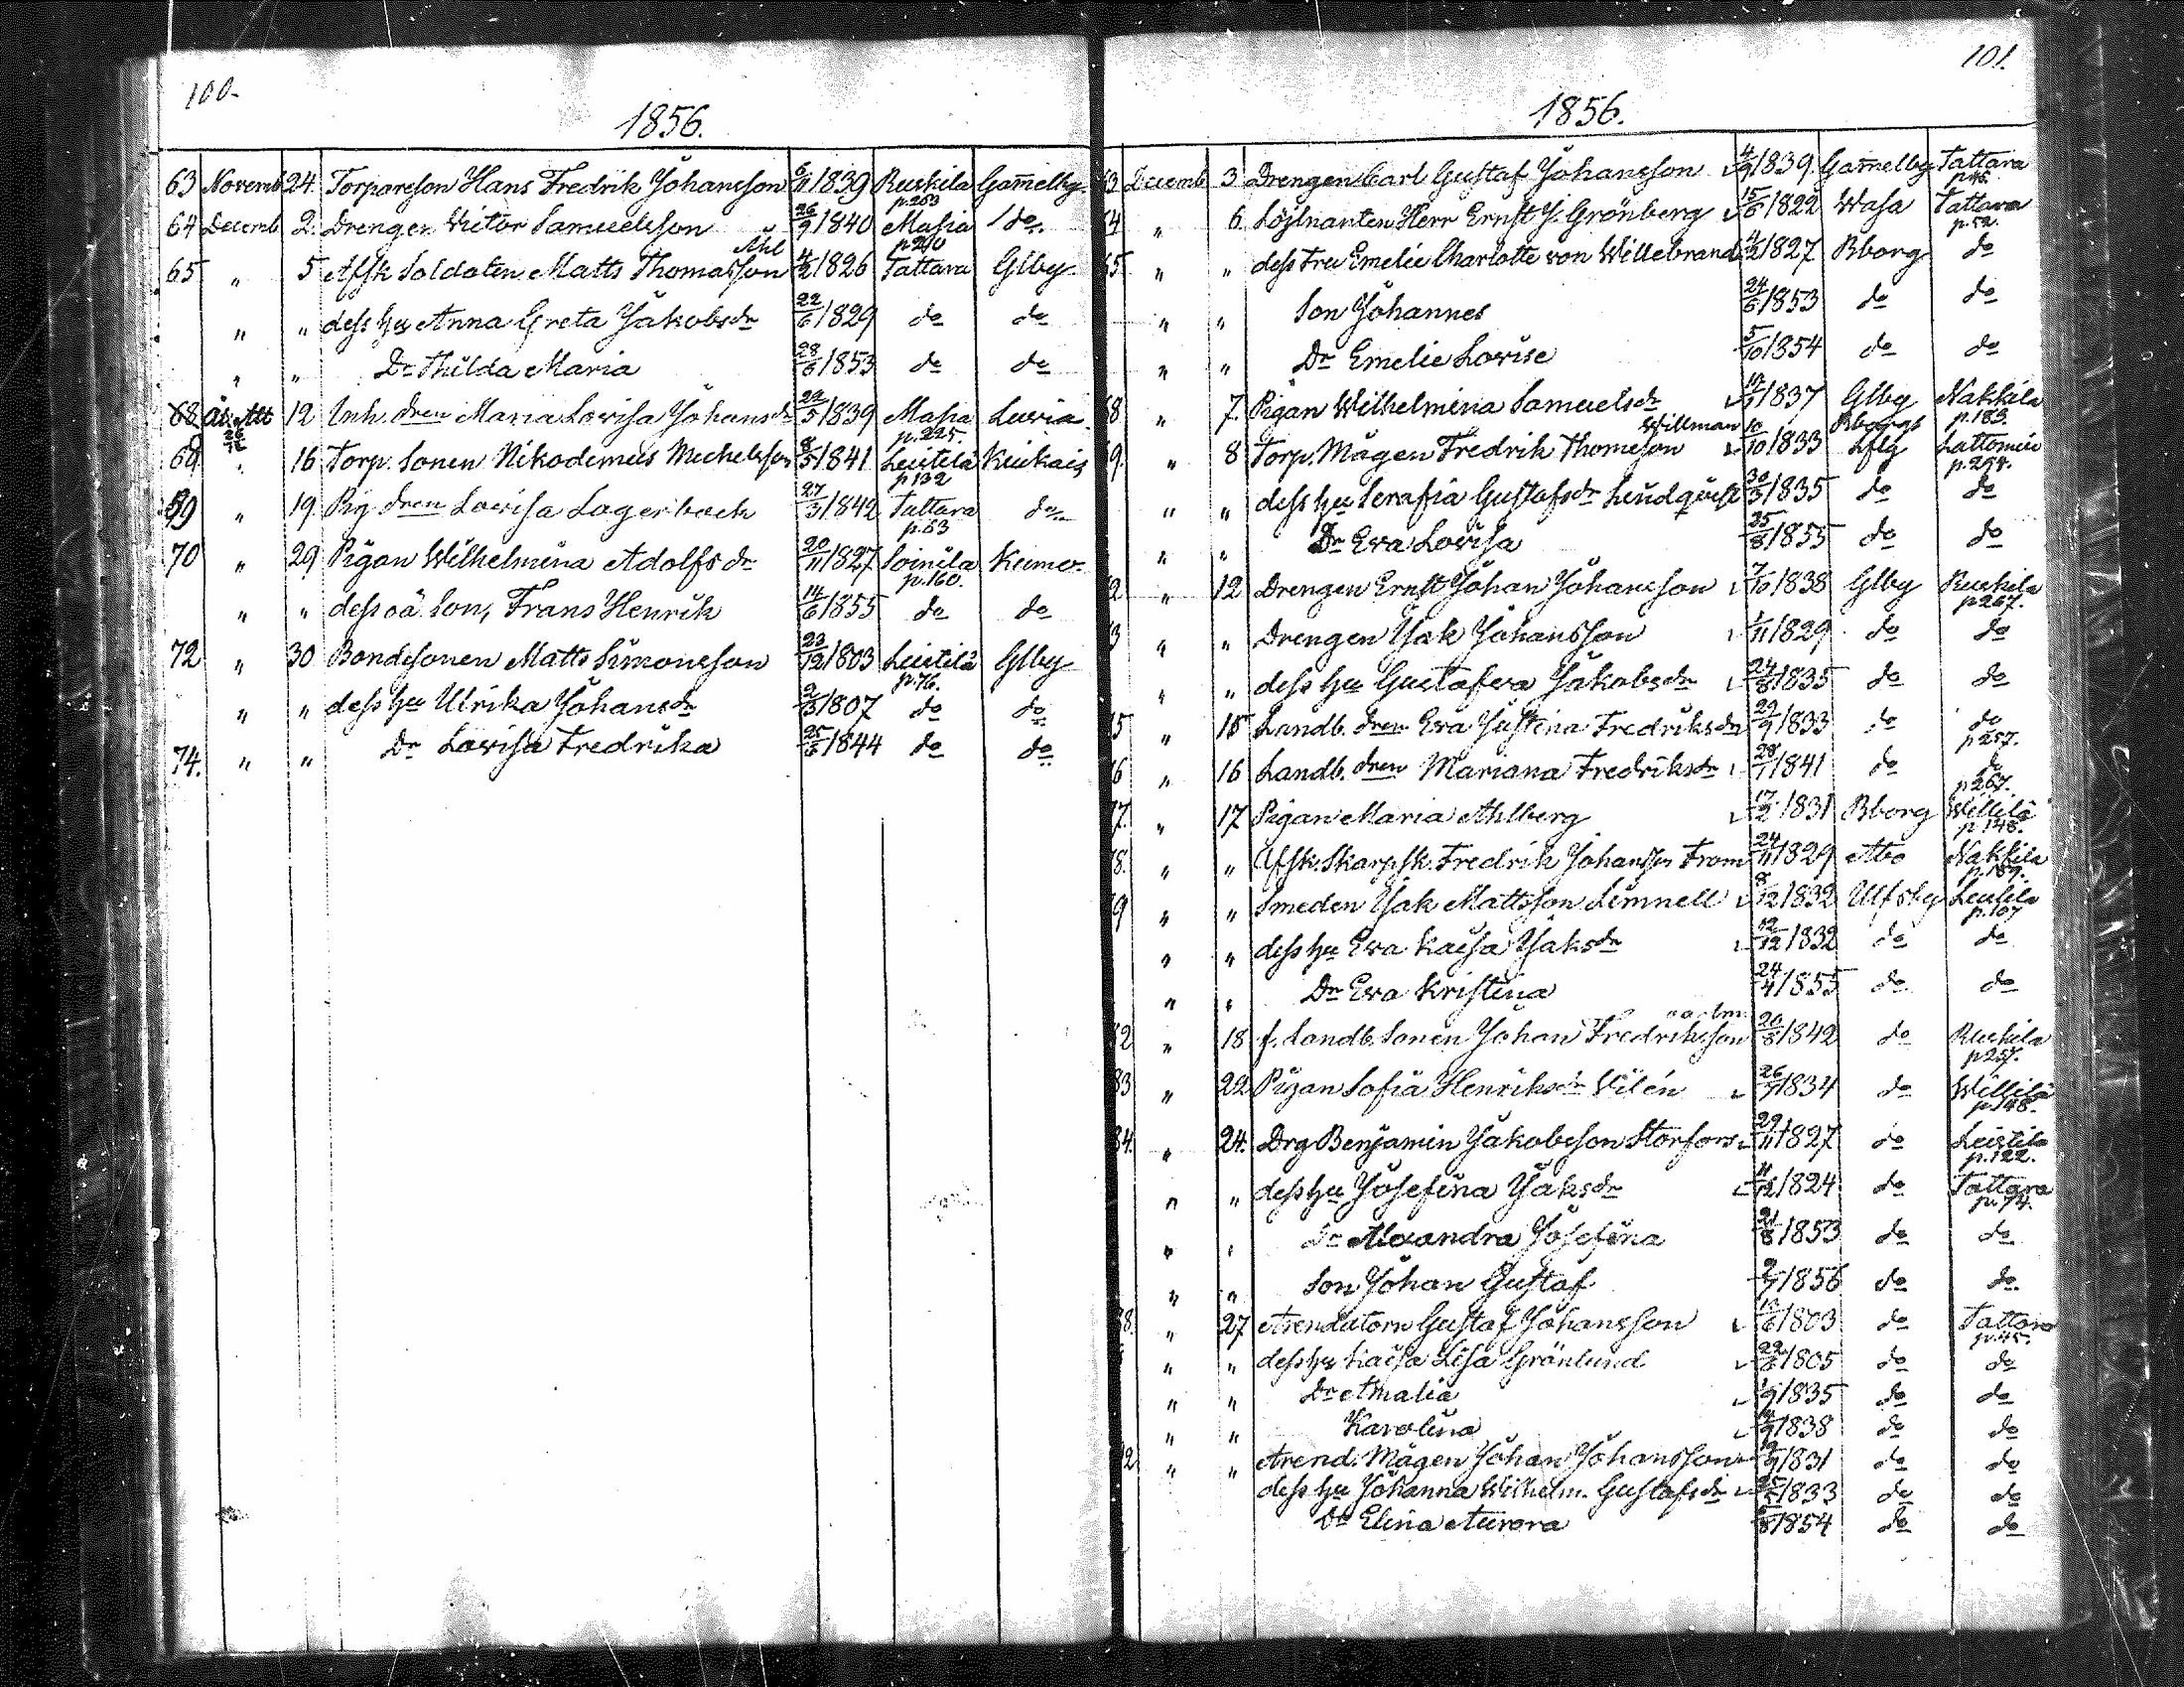 100.
1856.
63 Novemb 24. Torpareson Hans Fredrik Johansson 6/11 1839 Ruskila p.253 Gam̅elby
64 Decemb 2. Drengen Victor Samuelsson 26/9 1840 Masia p.210 do
65 " 5 Afsk Soldaten Matts Thomasson Ahl 4/2 1826 Tattara Glby
" " dess hu Anna Greta Jakobsdr 22/6 1829 do do
" " Dr Thilda Maria 28/6 1853 do do
68 12 Inh. dren Maria Lovisa Johansdr 22/5 1839 Masia p.225. Luvia
69 " 16 Torp. Sonen Nikodemus Mickelsson 8/5 1841 Leistilä p132 Kiukais
" 19 Pig dren Lovisa Lagerbach 27/3 1842 Tattara p.63 do
70 " 29 Pigan Wilhelmina Adolfsdr 20/11 1827 Soinila p.160. Kumo
" " dess oä Son, Frans Henrik 14/6 1855 do do
72 " 30 Bondesonen Matts Simonsson 23/12 1803 Leistilä p.76. Glby
" " dess hu Ulrika Johansdr 2/3 1807 do do
74. " " Dr Lovisa Fredrika 25/6 1844 do do
101.
1856.
Decemb 3 Drengen Carl Gustaf Johansson 4/9 1839 Gam̅elby Tattara p45.
" 6 Löjtnanten Herr Ernst J. Grönberg 15/6 1822 Wasa Tattara p.52.
" " dess Fru Emelie Charlotte von Willebrand 4/2 1827 Bborg do
" " Son Johannes 24/6 1853 do do
" " Dr Emelie Lovise 5/10 1854 do do
" 7. Pigan Wilhelmina Samuelsdr 1837 Glby Nakkila p.183.
" 8 Torp. Mågen Fredrik Thomsson Willman 10/10 1833 Lattomeri p.294.
" " dess hu Serafia Gustafsdr Lindqvist 30/3 1835 do do
" " Dr Eva Lovisa 25/8 1855 do do
" 12 Drengen Ernst Johan Johansson 7/10 1838 Glby Ruskila p267.
" " Drengen Isak Johansson 1/11 1829 do do
" " dess hu Gustafva Jakobsdr 24/8 1835 do do
" 15 Landb. dren Eva Justina Fredriksdr 29/9 1833 do do p257.
" 16 Landb. dren Mariana Fredriksdr 28/1 1841 do do p267.
" 17 Pigan Maria Ahlberg 17/2 1831 Bborg Willilä p148.
" " Afsk. Skarpsk. Fredrik Johansson From 24/11 1829 Abo Nakkila p.189.
" " Smeden Isak Mattsson Limnell 8/12 1832 Ulfsby Leistila p.107
" " dess hu Eva Kaisa Isaksdr 12/12 1832 do do
" " Dr Eva Kristina 24/4 1855 do do
" 18 f. Landb. Sonen Johan Fredriksson 20/8 1842 do Ruskila p257.
83 " 22 Pigan Sofia Henriksdr Vilén 26/7 1834 do Willilä p148.
84. " 24. Drg Benjamin Jakobsson Storfors 29/11 1827 do Leistila p.122.
" " dess hu Josefina Isaksdr 11/12 1824 do Tattara p.74.
" " Dr Alexandra Josefina 21/8 1853 do do
" " Son Johan Gustaf 1856 do do
" 27 Arendatorn Gustaf Johansson 1803 do Tattara p.45.
" " dess hu Kaisa Lisa Grönlund 1805 do do
" " Dr Amalia 1/9 1835 do do
" " Karolina 1838 do do
" " Arend. Mågen Johan Johansson 1831 do do
dess hu Johanna Wilhelm. Gustafsdr 1833 do do
Dr Elina Aurora 1854 do do